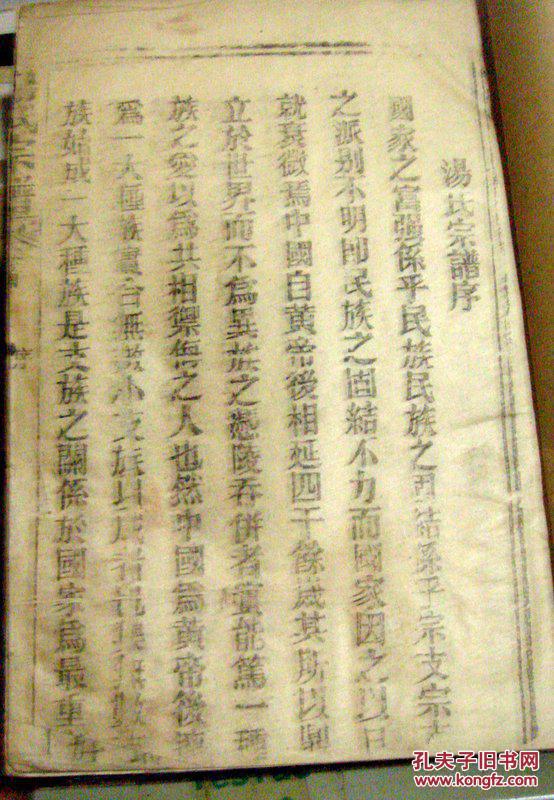 湯氏宗譜序
國家之富强係乎民族民族之固結係乎宗支宗
之派别不明即民族之固結不力而國家因之以日
就衰微焉中國自黃帝後相延四千餘歲其所以
立於世界而不爲異族之憑陵吞併者實能篤一
族之愛以爲共相禦侮之人也然中國爲黃帝後
爲一大種族實合無數小支族以成者
族始成一大種族是支族之關係於國家爲最重
孔夫子旧书网
www.kongfz.com